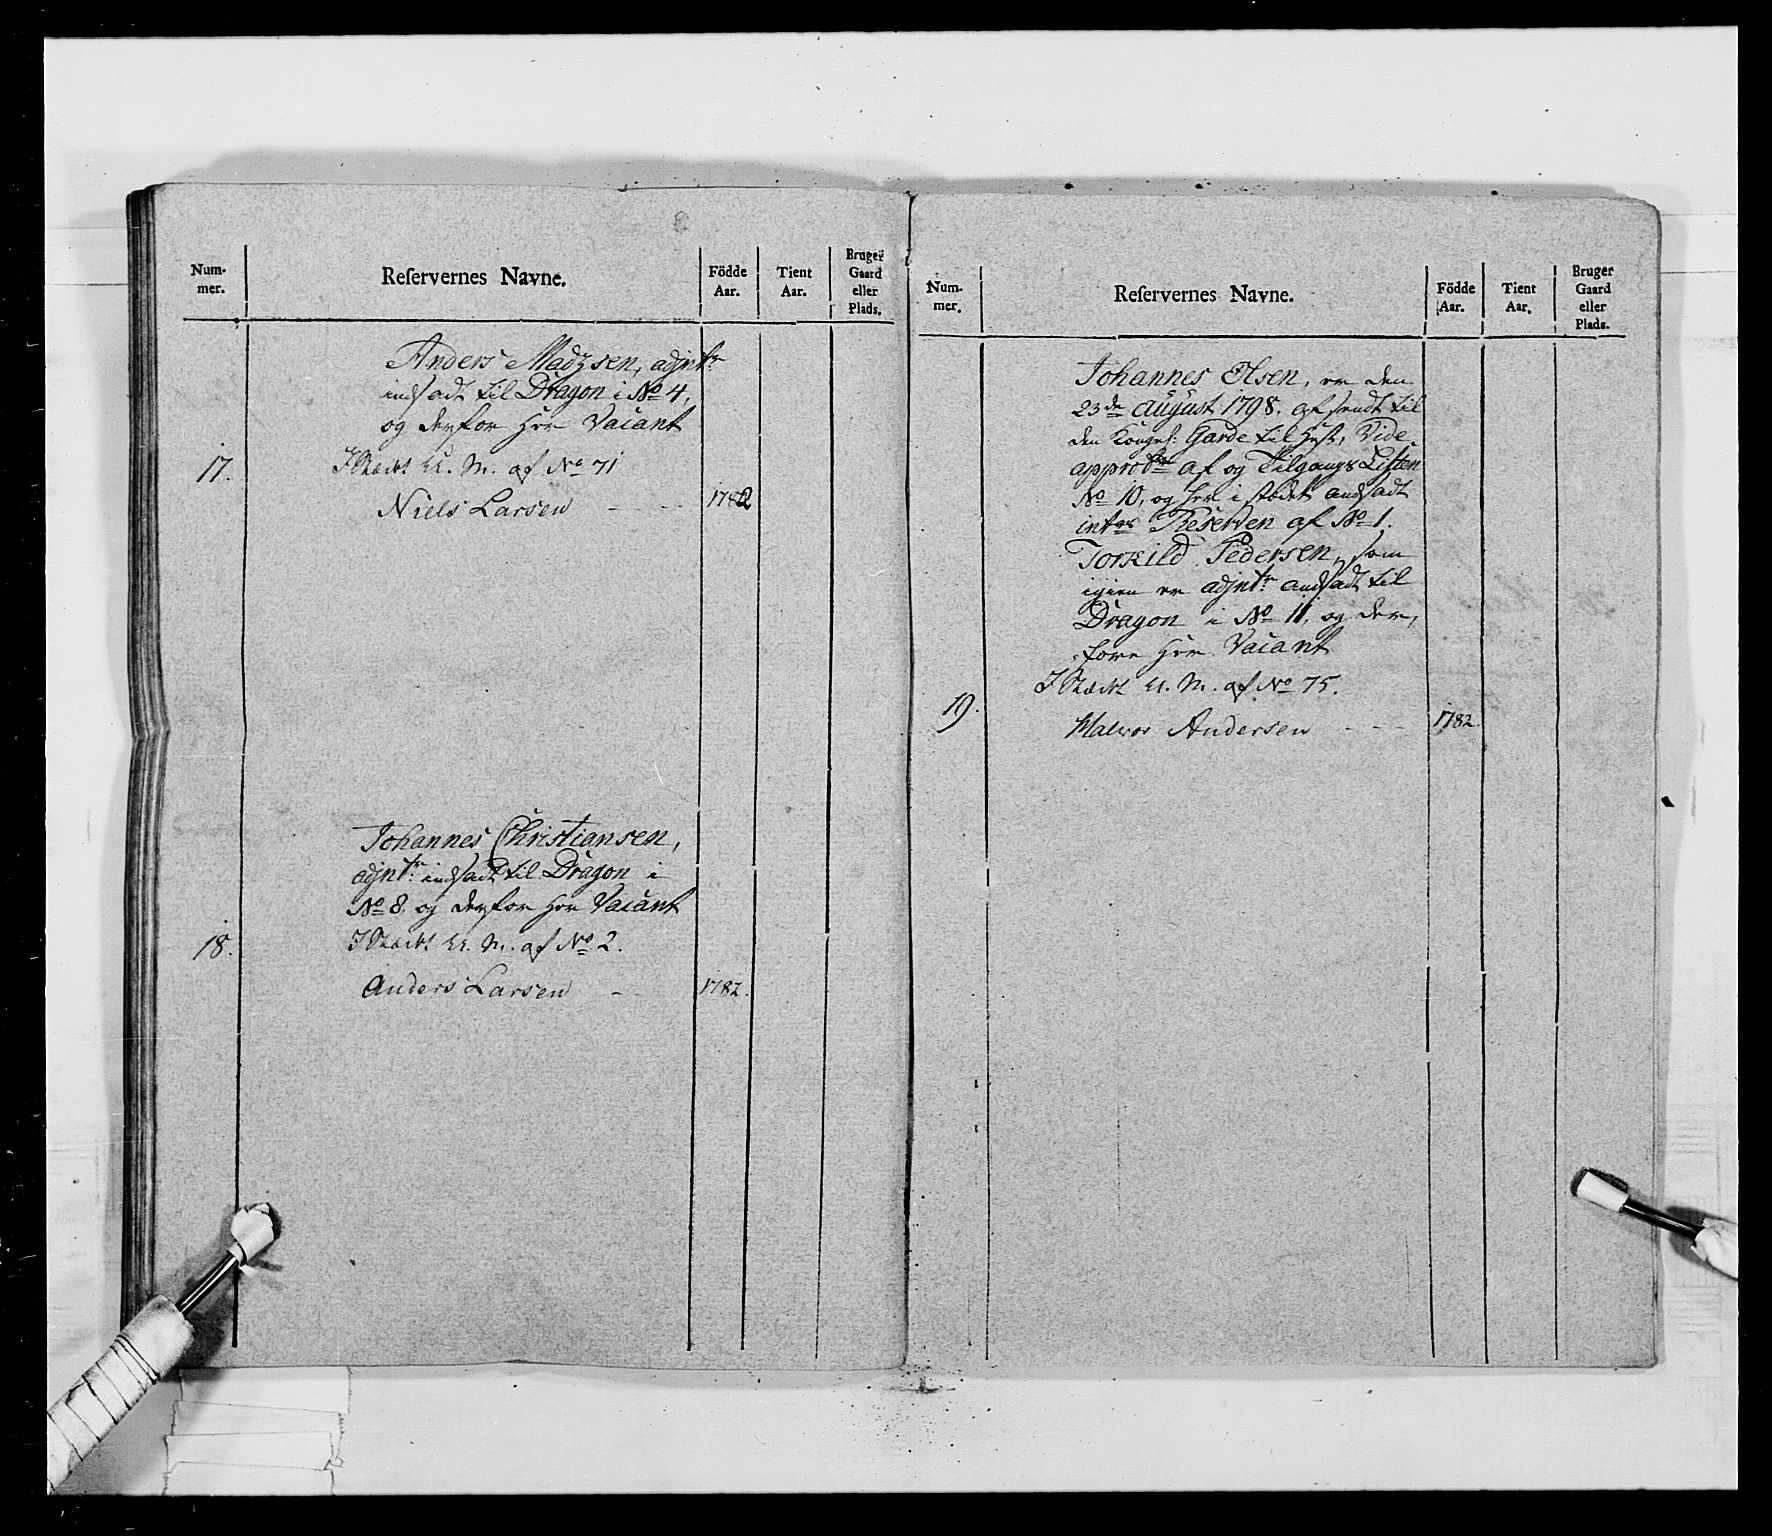 Num-
mer.
Reſervernes Navne.
Födde
Aar.
Tient
Aar.
Bruger
Gaard
eller
Plads.
Anders Madzsen, adjntr:
indsadt til Dragon i No 4,
og derfor her Vacant
17.
U. M. af No 71
Niels Larsen 1782
Johannes Christiansen,
adjntr: indsadt til Dragon i
No 8. og derfor her Vacant
18.
U. M. af No 2.
Anders Larsen 1782.
Num-
mer.
Reſervernes Navne.
Födde
Aar.
Tient
Aar.
Bruger
Gaard
eller
Plads.
Johannes Olsen, er den
23de August 1798. afsendt til
den Kongel: Garde til Hest, Vide
af og Tilgangs Listen
No 10, og her i stædet andsadt
Reserven af No 1.
Torkild Pedersen, som
igien er adjntr: andsadt til
Dragon i No 11, og der,
fore her Vacant
19.
U. M. af No 75.
Halvor Andersen 1782.